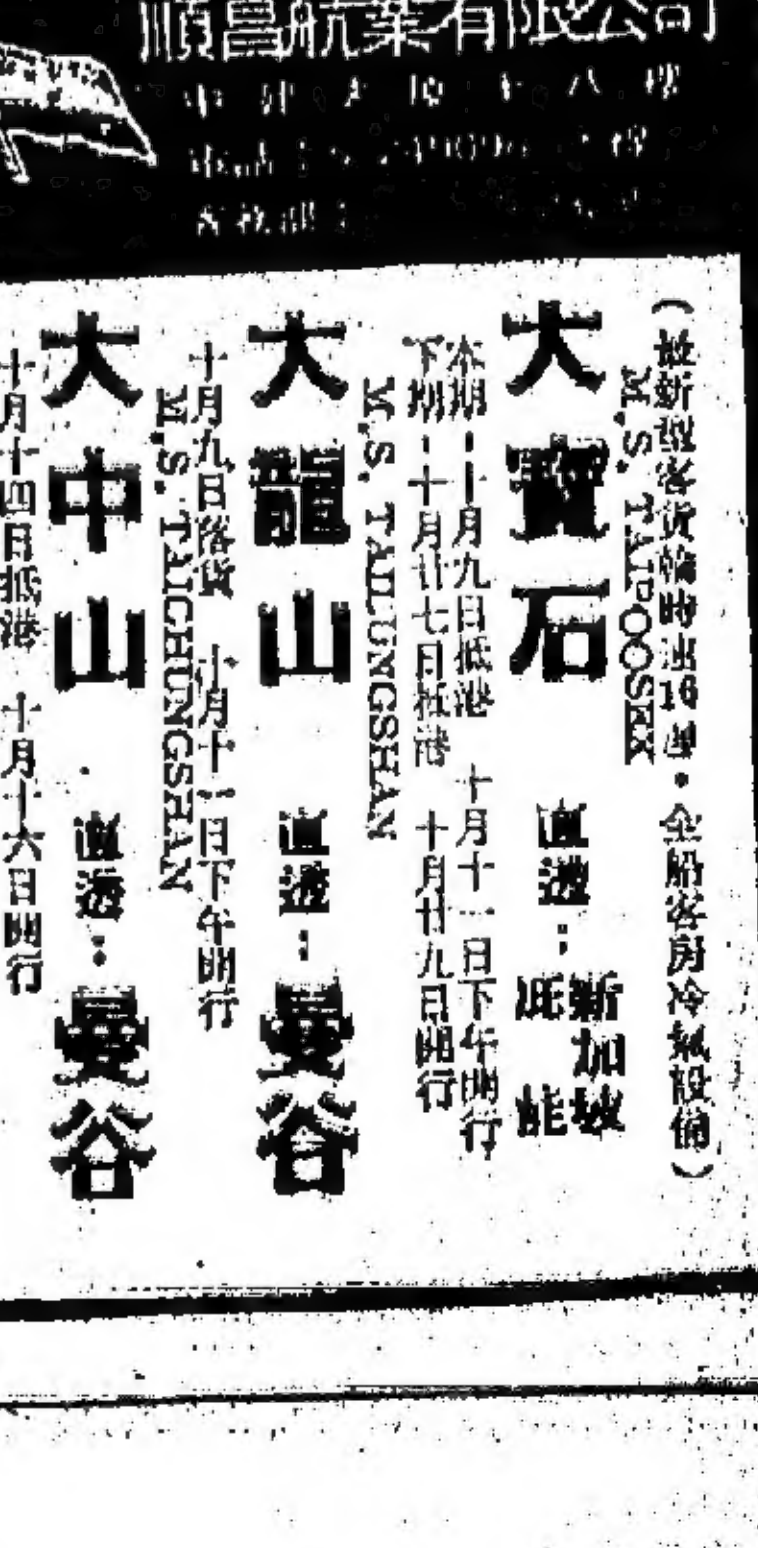 順昌航業有限公司
(最新型客貨輪時速16浬•全船客房冷氣設備)
M.S. TAIPOOSEK
大寶石 直透:新加坡 庇能
本期:十月九日抵港 十月十一日下午開行
下期:十月廿七日抵港 十月廿九日開行
M.S. TAILUNGSHAN
大龍山 直透:曼谷
十月九日落貨 十月十一日下午開行
M.S. TAICHUNGSHAN
大中山 直透:曼谷
十月十四日抵港 十月十六日開行